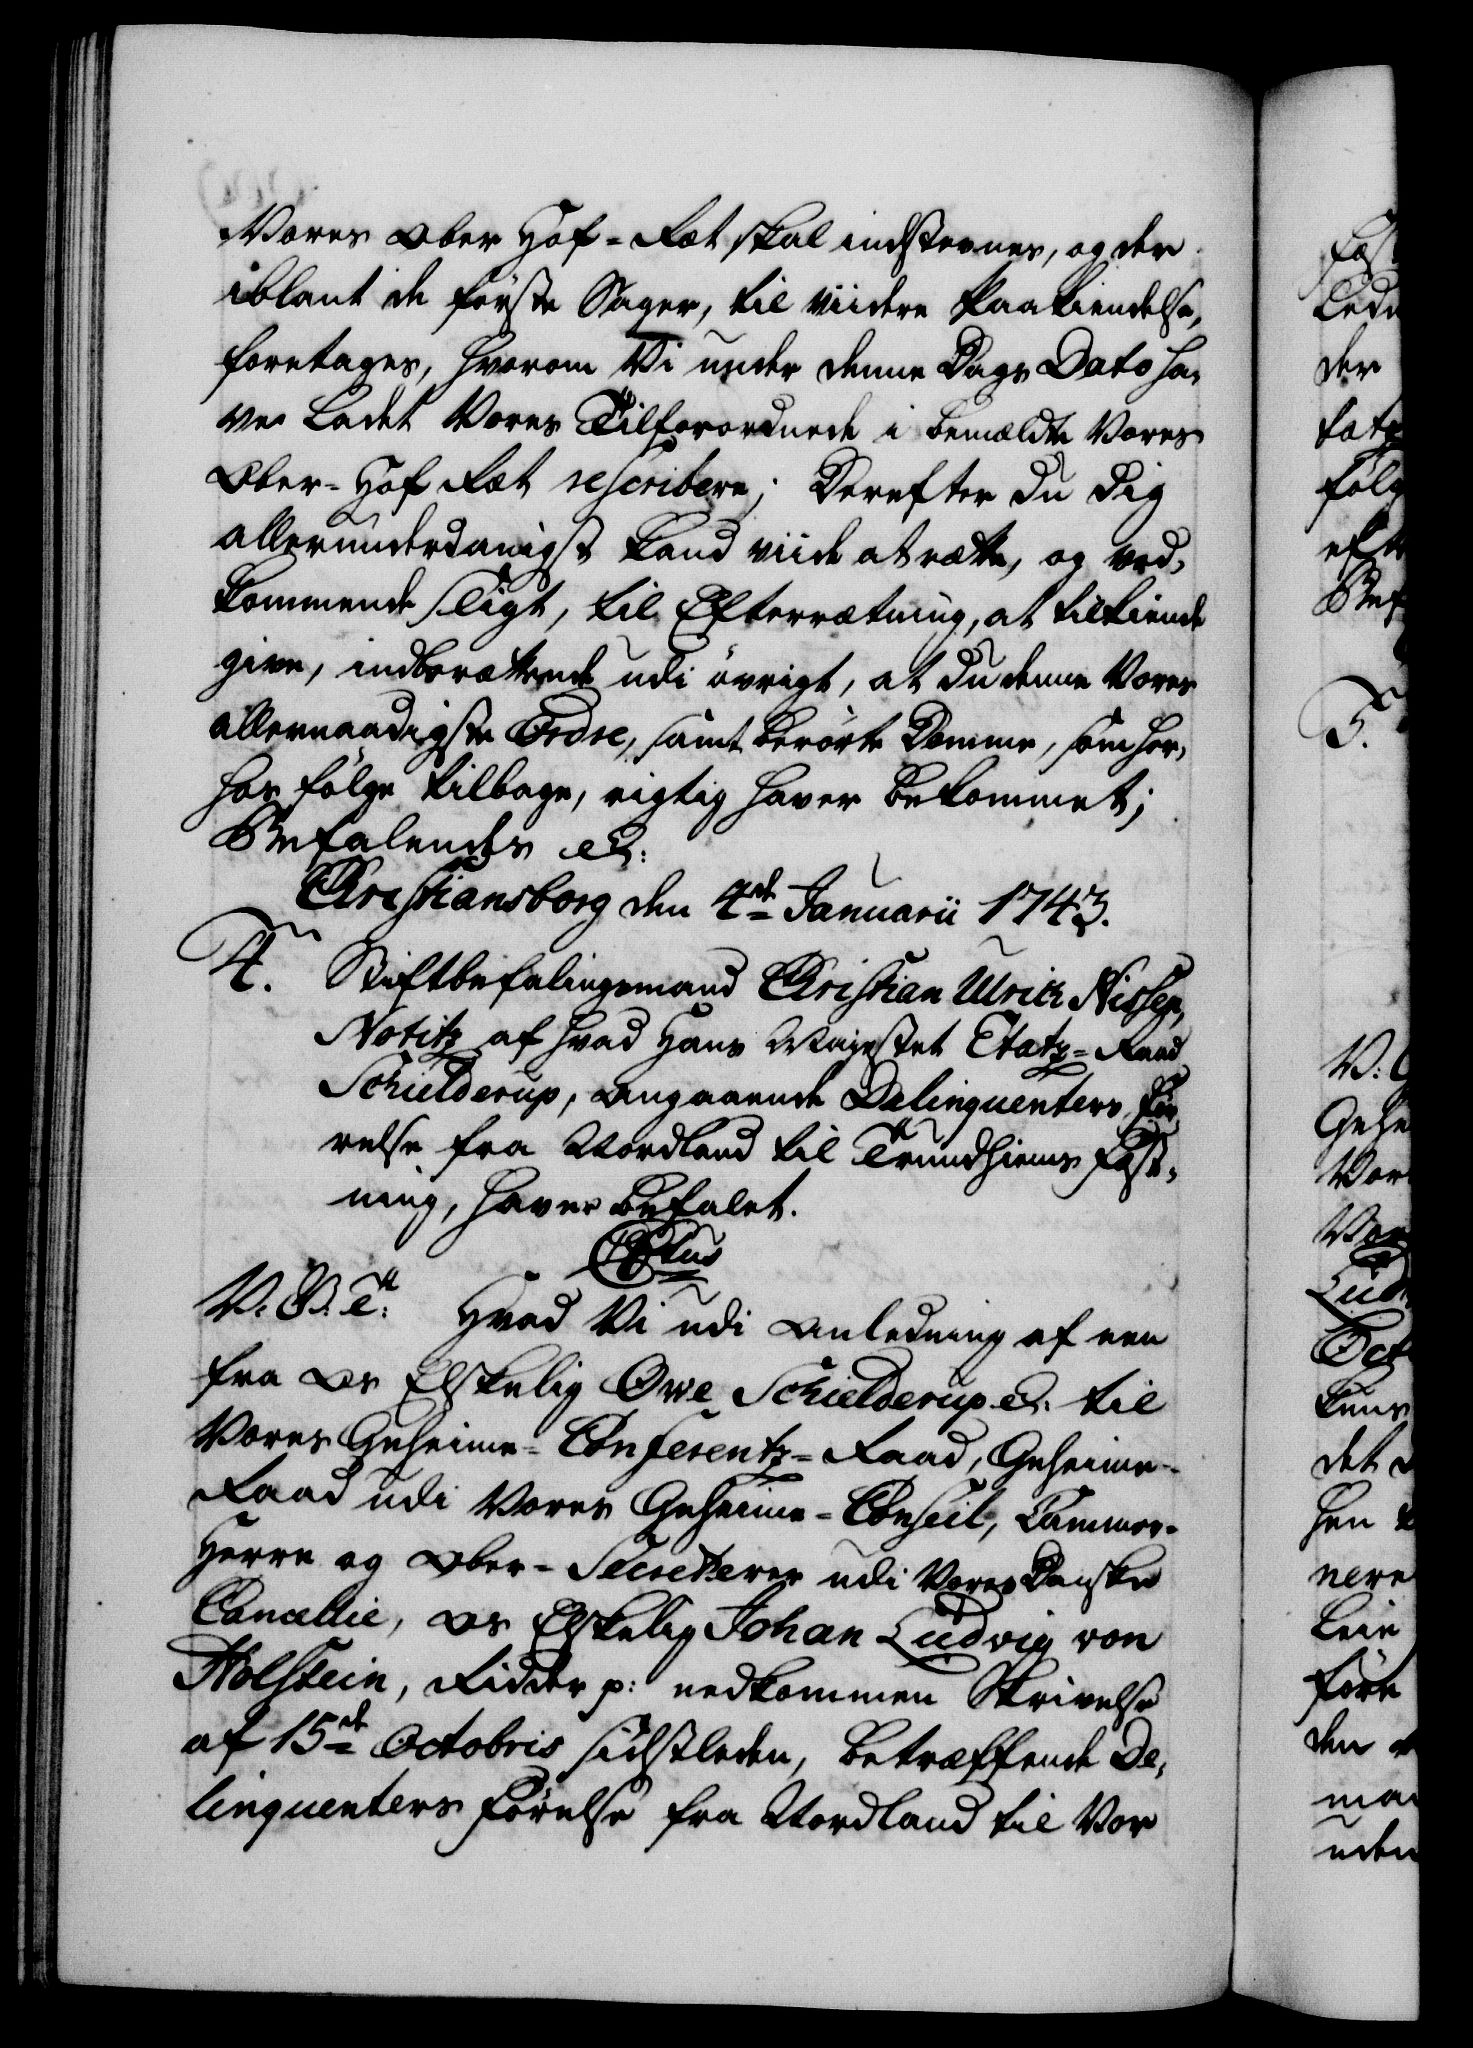 Vores Ober Hof-Ræt skal indstevnes, og der
iblant de første Sager, til viidere Paakiendelse,
foretages, hvorom Vi under denne Dags Dato ha-
ve ladet Vores Tilforordnede i bemældte Vores
Ober-Hof Ræt rescribere; Derefter du dig
allerunderdanigst kand viide at rætte, og ved-
kommende sligt, til Efterrætning, at tilkiende
give, indberættende udi øvrigt, at du denne Vores
allernaadigste Ordre, samt berørte Domme, som her-
hos følge tilbage, rigtig haver bekommet;
Befalendes etc:
Christiansborg den 4de Januarii 1743.
4. Stiftbefalingsmand Christian Ulrich Nissen,
Notitz af hvad Hans Majestet Etatz-Raad
Schielderup, angaaende Delinquenters Før-
relse fra Nordland til Trundhiems Fæst-
ning, haver befalet.
CStus
V. G. T. Hvad Vi udi Anledning af een
fra Os Elskelig Ove Schielderup etc. til
Vores Geheime-Conferentz-Raad, Geheime-
Raad udi Vores Geheime-Conseil, Cammer-
Herre og Ober-Secreterer udi Vores Danske
Cancellie, Os Elskelig Johan Ludvig von
Holstein, Ridder p: nedkommen Skrivelse
af 15de Octobris sidstleden, betræffende De-
linquenters Førelse fra Nordland til Vor